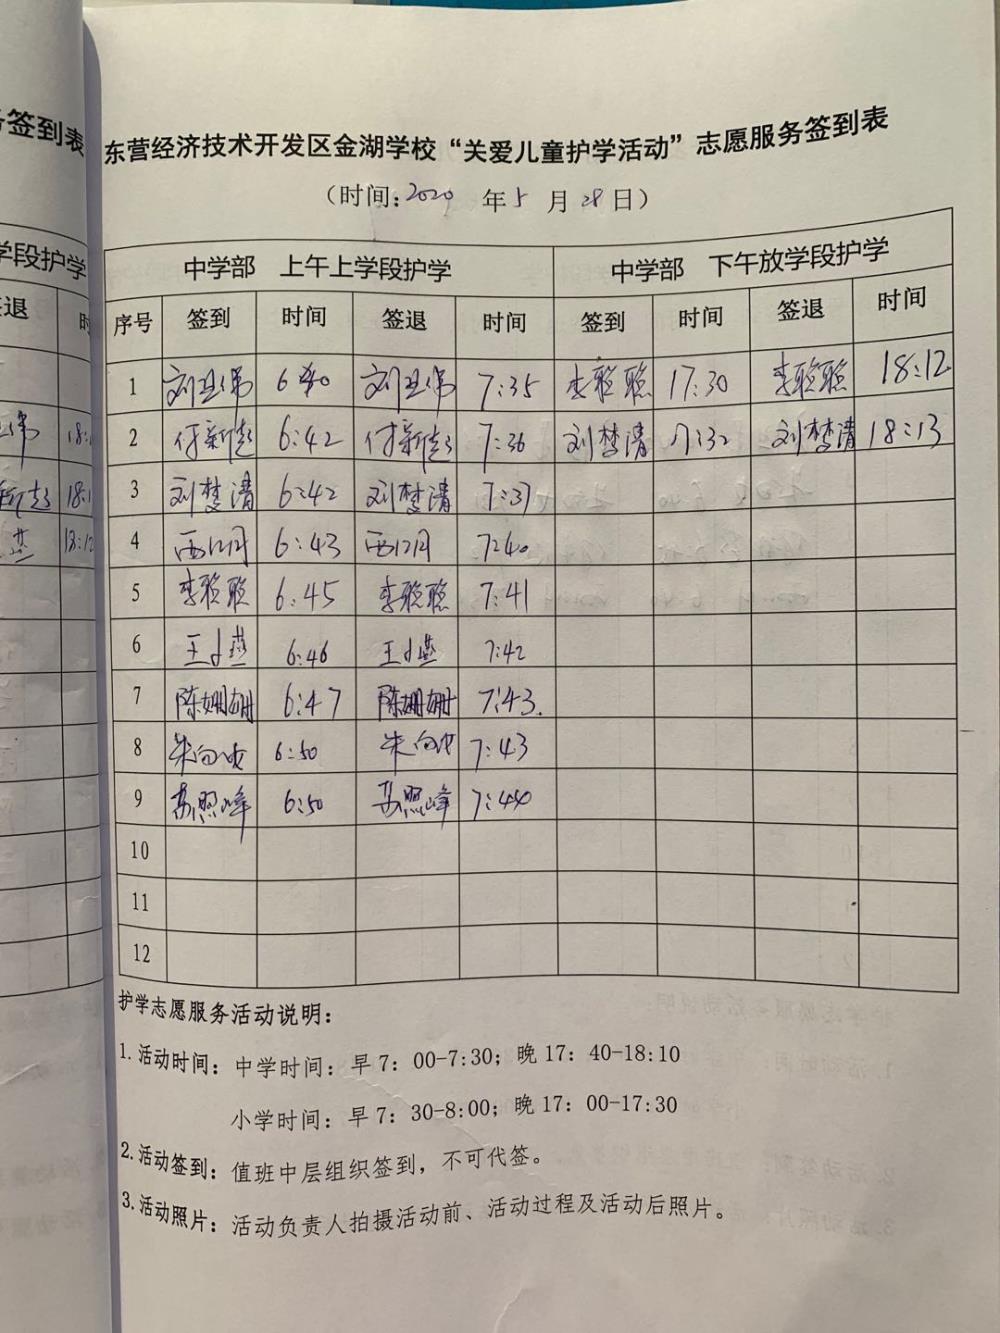 务签到表
东营经济技术开发区金湖学校“关爱儿童护学活动”志愿服务签到表
（时间:2020 年 5 月 28 日）
学段护学
中学部 上午上学段护学 中学部 下午放学段护学
签退 时
序号 签到 时间 签退 时间 签到 时间 签退 时间
1 6:40 7:35 李聪聪 17:30 李聪聪 18:12
2 付新超 6:42 付新超 7:36 刘梦清 17:32 刘梦清 18:13
3 刘梦清 6:42 刘梦清 7:37
4 6:43 7:40
5 李聪聪 6:45 李聪聪 7:41
6 王小燕 6:46 王小燕 7:42
7 陈姗姗 6:47 陈姗姗 7:43.
8 6:50 7:43
9 苏照峰 6:50 苏照峰 7:44
10
11
12
护学志愿服务活动说明：
1.活动时间：中学时间：早7：00-7:30；晚17：40-18:10
小学时间：早7：30-8:00；晚17：00-17:30
2.活动签到：值班中层组织签到，不可代签。
3.活动照片：活动负责人拍摄活动前、活动过程及活动后照片。